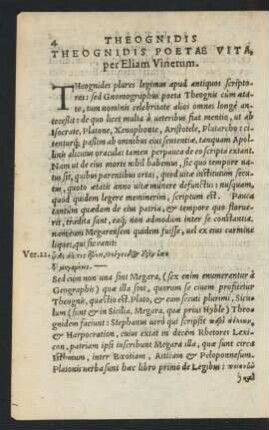 4 THEOGNIDIS
THEOGNIDIS POETAE VITA,
per Eliam Vinetum.
THeognides plures legimus apud antiquos scripto-
res: sed Gnomographus poeta Theognis cùm aeta-
te, tum nominis celebritate alios omnes longè an-
tecessit: de quo licet multa à ueteribus fiat mentio, ut ab
Isocrate, Platone, Xenophonte, Aristotele, Plutarcho: ci-
tenturq́; passim ab omnibus eius sententiae, tanquam Apol-
linis alicuius oracula: tamen perpauca de eo scripta extant.
Nam ut de eius morte nihil habemus, sic quo tempore na-
tus sit, quibus parentibus ortus, quod uitae institutum secu-
tus, quoto aetatis anno uita munere defunctus: nusquam,
quod quidem legere meminerim, scriptum est. Pauca
tantùm quaedam de eius patria, & tempore quo floruc-
rit, tradita sunt, eaq́; non admodum inter se constantia.
nam eum Megarensem quidem fuisse, uel ex eius carmine
liquet, qui sic canit:
Ver. 22.
Sed cum non una sint Megara, (sex enim enumerantur à
Geographis) quae illa sint, quorum se ciuem profitetur
Theognis, quaestio est. Plato, & eum secuti plurimi, Sicu-
lum (sunt & in Sicilia, Megara, quae prius Hyble) Theo-
gnidem faciunt: Stephanus uerò qui scripsit
& Harpocration, cuius extat in decem Rhetores Lexi-
con, patriam ipsi inscribunt Megara illa, quae sunt circa
Isthmum, inter Boeotiam, Atticam & Peloponnesum.
Platonis uerba sunt haec libro primo de Legibus: